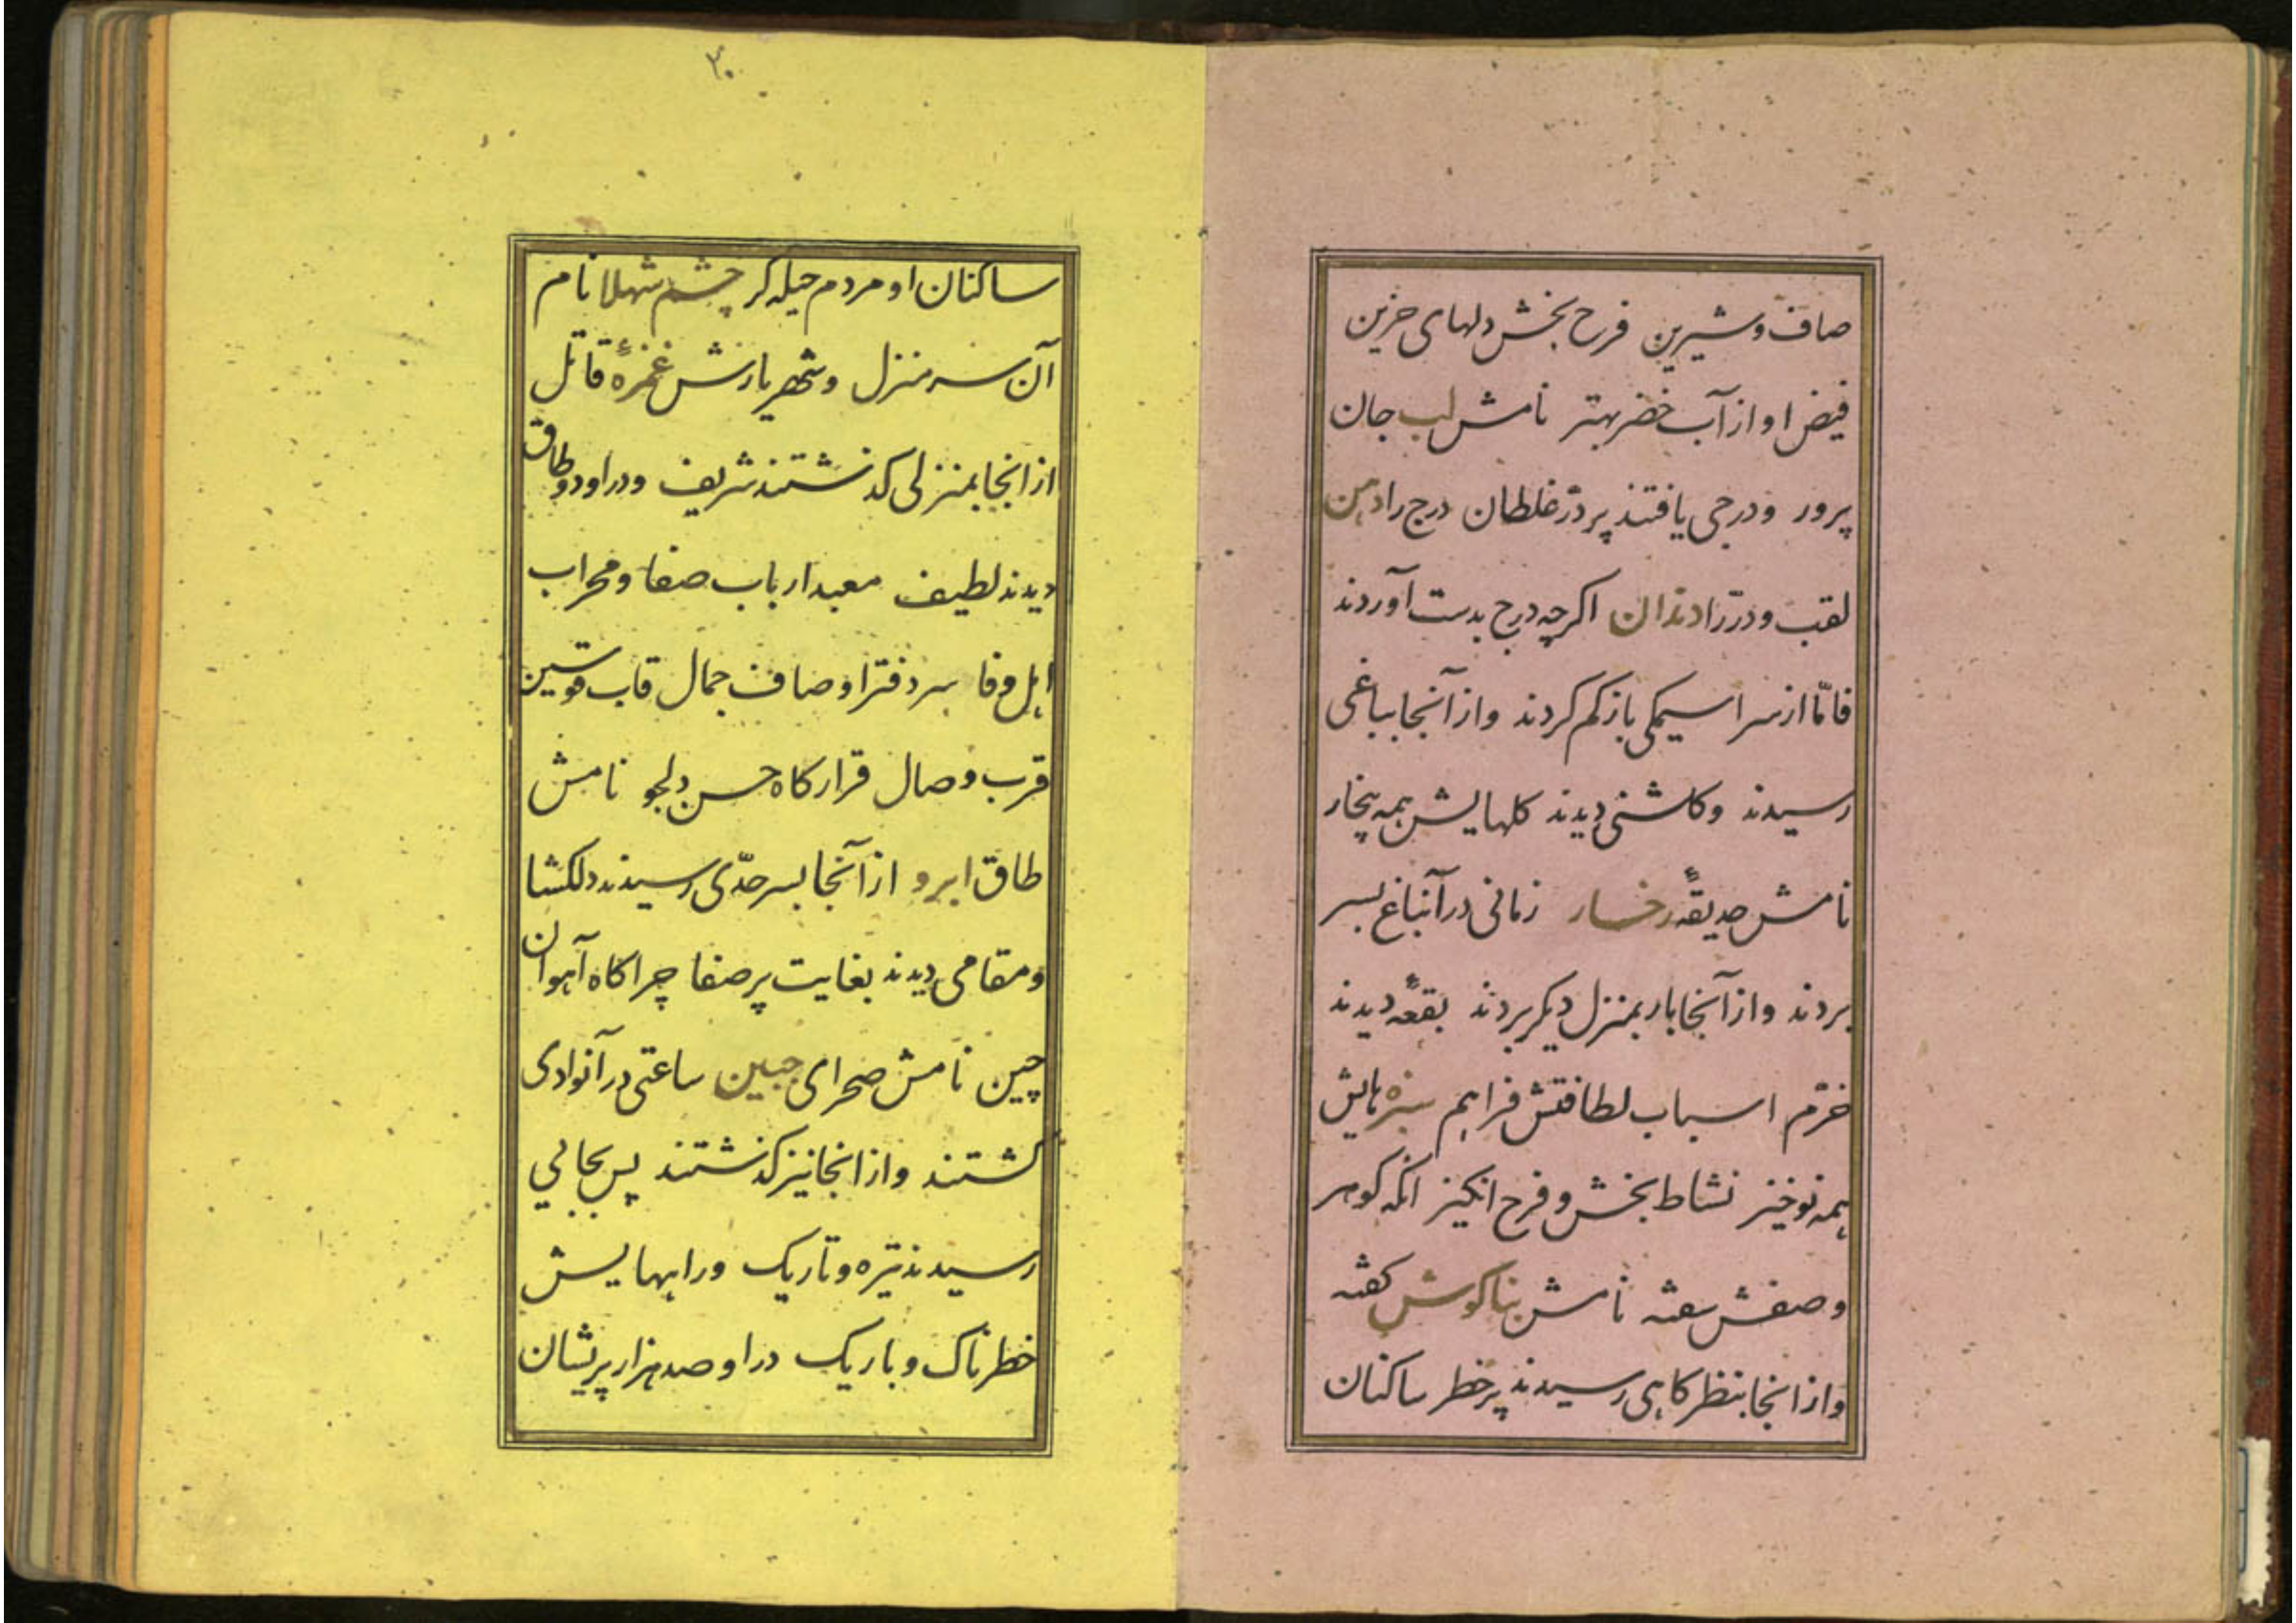 صاف و شیرین فرح بخش دلهای حزین
فیض او از آب خضر بهتر نامش لب جان
پرور و درجی یافتند پر درّ غلطان درج را دهن
لقب و درّ را دندان اکرچه درج بدست آوردند
فامّا از سراسیمکی باز کم کردند و از آنجا بباغی
رسیدند و کلشنی دیدند کلهایش همه بیخار
نامش حدیقهٔ رخسار زمانی در آنباغ بسر
بردند و از آنجا بار بمنزل دیکر بردند بقعهٔ دیدند
خرّم اسباب لطافتش فراهم سبزه هایش
همه نوخیز نشاط بخش و فرح انکیز انکه کوهر
وصفش سفته نامش بناکوش کفته
و از انجا بنظرکاهی رسیدند پر خطر ساکنان
۳۰
ساکنان او مردم حیله کر چشم شهلا نام
آن سرمنزل و شهریارش غمزهٔ قاتل
از انجا بمنزلی کذشتند شریف و در او دو طاق
دیدند لطیف معبد ارباب صفا و محراب
اهل وفا سر دفتر اوصاف جمال قاب قوسین
قرب وصال قرارکاه حسن دلجو نامش
طاق ابرو از آنجا بسرحدّی رسیدند دلکشا
و مقامی دیدند بغایت پر صفا چراکاه آهوان
چین نامش صحرای جبین ساعتی در آنوادی
کشتند و از انجا نیز کذشتند پس بجایی
رسیدند تیره و تاریک و راههایش
خطرناک و باریک در او صد هزار پریشان